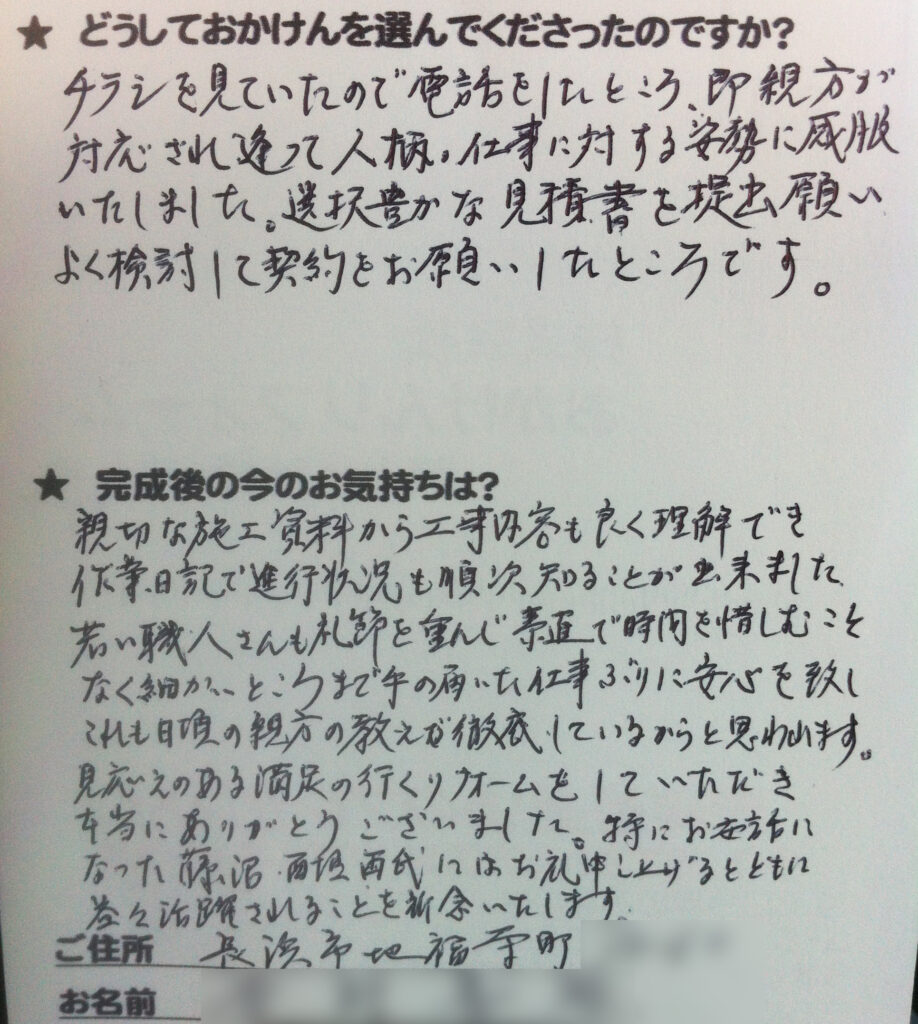 ★ どうしておかけんを選んでくださったのですか?
チラシを見ていたので電話をしたところ、即親方が
対応され逢って人柄。仕事に対する姿勢に感服
いたしました。選択豊かな見積書を提出願い
よく検討して契約をお願いしたところです。
★ 完成後の今のお気持ちは?
親切な施工資料から工事内容も良く理解でき
作業日記で進行状況も順次知ることが出来ました
若い職人さんも礼節を重んじ素直で時間を惜しむこと
なく細かいところまで手の届いた仕事ぶりに安心を致し
これも日頃の親方の教えが徹底しているからと思われます。
見応えのある満足の行くリフォームをしていただき
本当にありがとうございました。特にお世話に
なった藤沼 西垣両氏にはお礼申し上げるとともに
益々活躍されることを祈念いたします。
ご住所 長浜市地福寺町
お名前